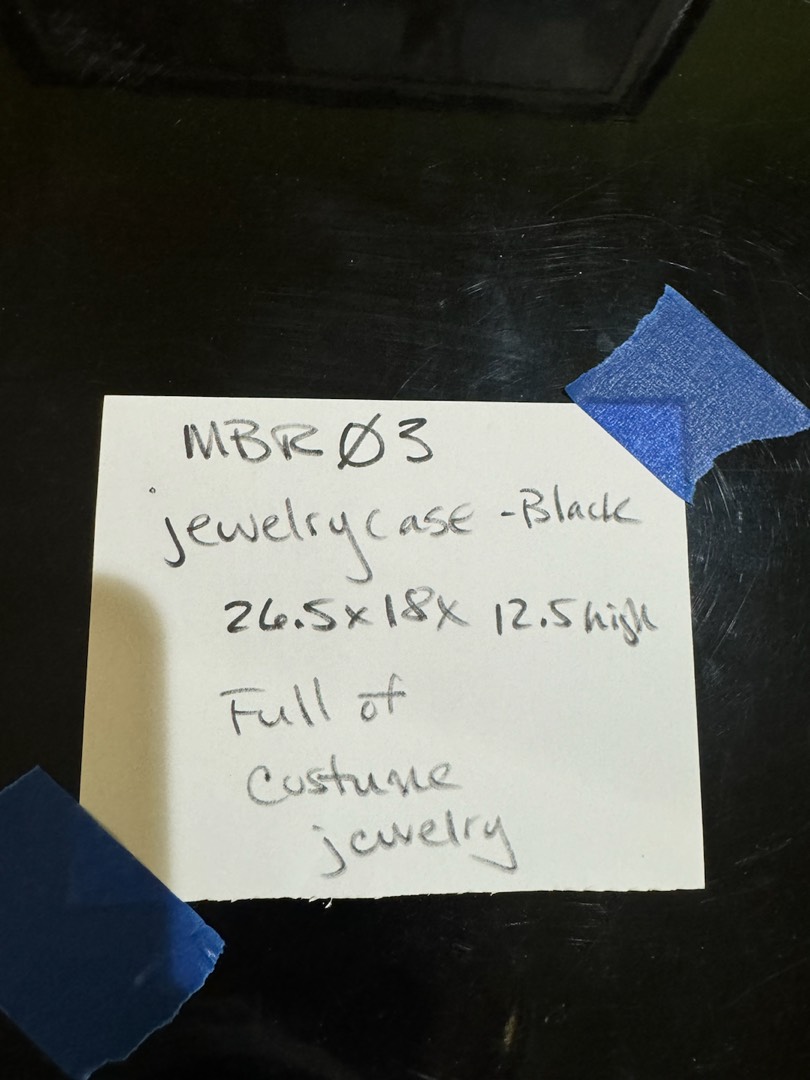 MBRØ3
jewelry case - Black
26.5 x 18 x 12.5 high
Full of
Costume
jewelry